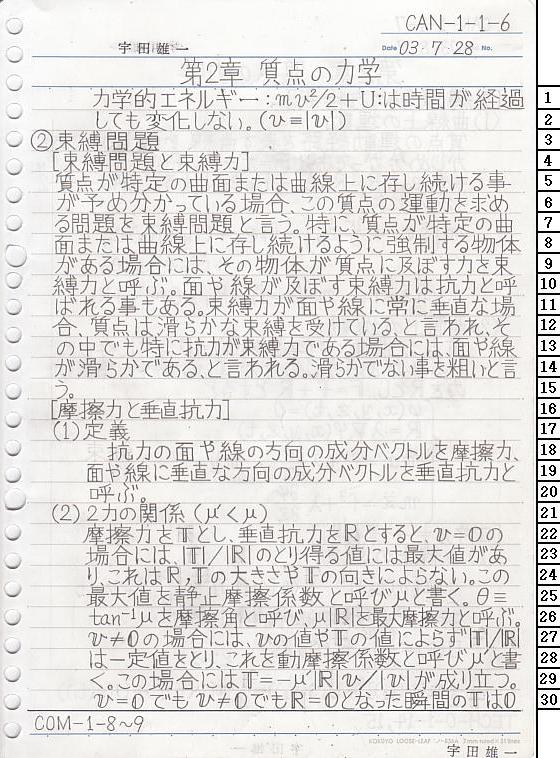 CAN-1-1-6
宇田雄一
Date 03・7・28 No.
第2章 質点の力学
力学的エネルギー:mv²/2+U:は時間が経過
しても変化しない。(v≡|v|)
②束縛問題
[束縛問題と束縛力]
質点が特定の曲面または曲線上に存し続ける事
が予め分かっている場合、この質点の運動を求め
る問題を束縛問題と言う。特に、質点が特定の曲
面または曲線上に存し続けるように強制する物体
がある場合には、その物体が質点に及ぼす力を束
縛力と呼ぶ。面や線が及ぼす束縛力は抗力と呼
ばれる事もある。束縛力が面や線に常に垂直な場
合、質点は滑らかな束縛を受けている、と言われ、そ
の中でも特に抗力が束縛力である場合には、面や線
が滑らかである、と言われる。滑らかでない事を粗いと言
う。
[摩擦力と垂直抗力]
(1)定義
抗力の面や線の方向の成分ベクトルを摩擦力、
面や線に垂直な方向の成分ベクトルを垂直抗力と
呼ぶ。
(2)2力の関係(μ'<μ)
摩擦力をTとし、垂直抗力をRとすると、v=0の
場合には、|T|/|R|のとり得る値には最大値があ
り、これはR,Tの大きさやTの向きによらない。この
最大値を静止摩擦係数と呼びμと書く。θ≡
tan⁻¹μを摩擦角と呼び、μ|R|を最大摩擦力と呼ぶ。
v≠0の場合には、vの値やTの値によらず|T|/|R|
は一定値をとり、これを動摩擦係数と呼びμ'と書
く。この場合にはT=-μ'|R|v/|v|が成り立つ。
v=0でもv≠0でもR=0となった瞬間のTは0
COM-1-8~9
KOKUYO LOOSE-LEAF ノ-836A 7mm ruled×31 lines
宇田雄一
1
2
3
4
5
6
7
8
9
10
11
12
13
14
15
16
17
18
19
20
21
22
23
24
25
26
27
28
29
30